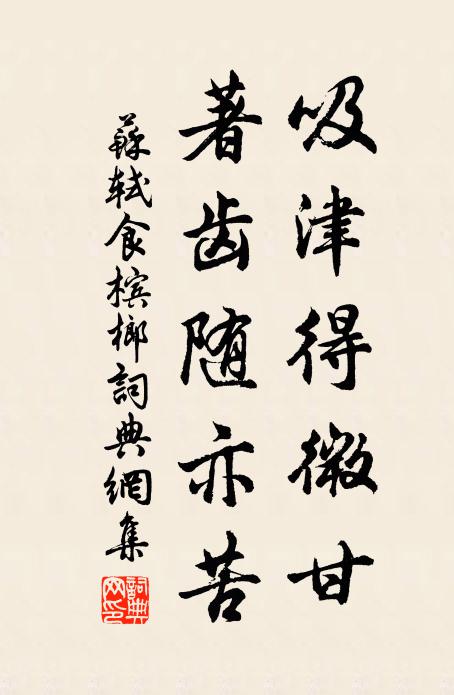 吸津得微甘
著齿随亦苦
蘇軾食檳榔詞典網集
詞典網印